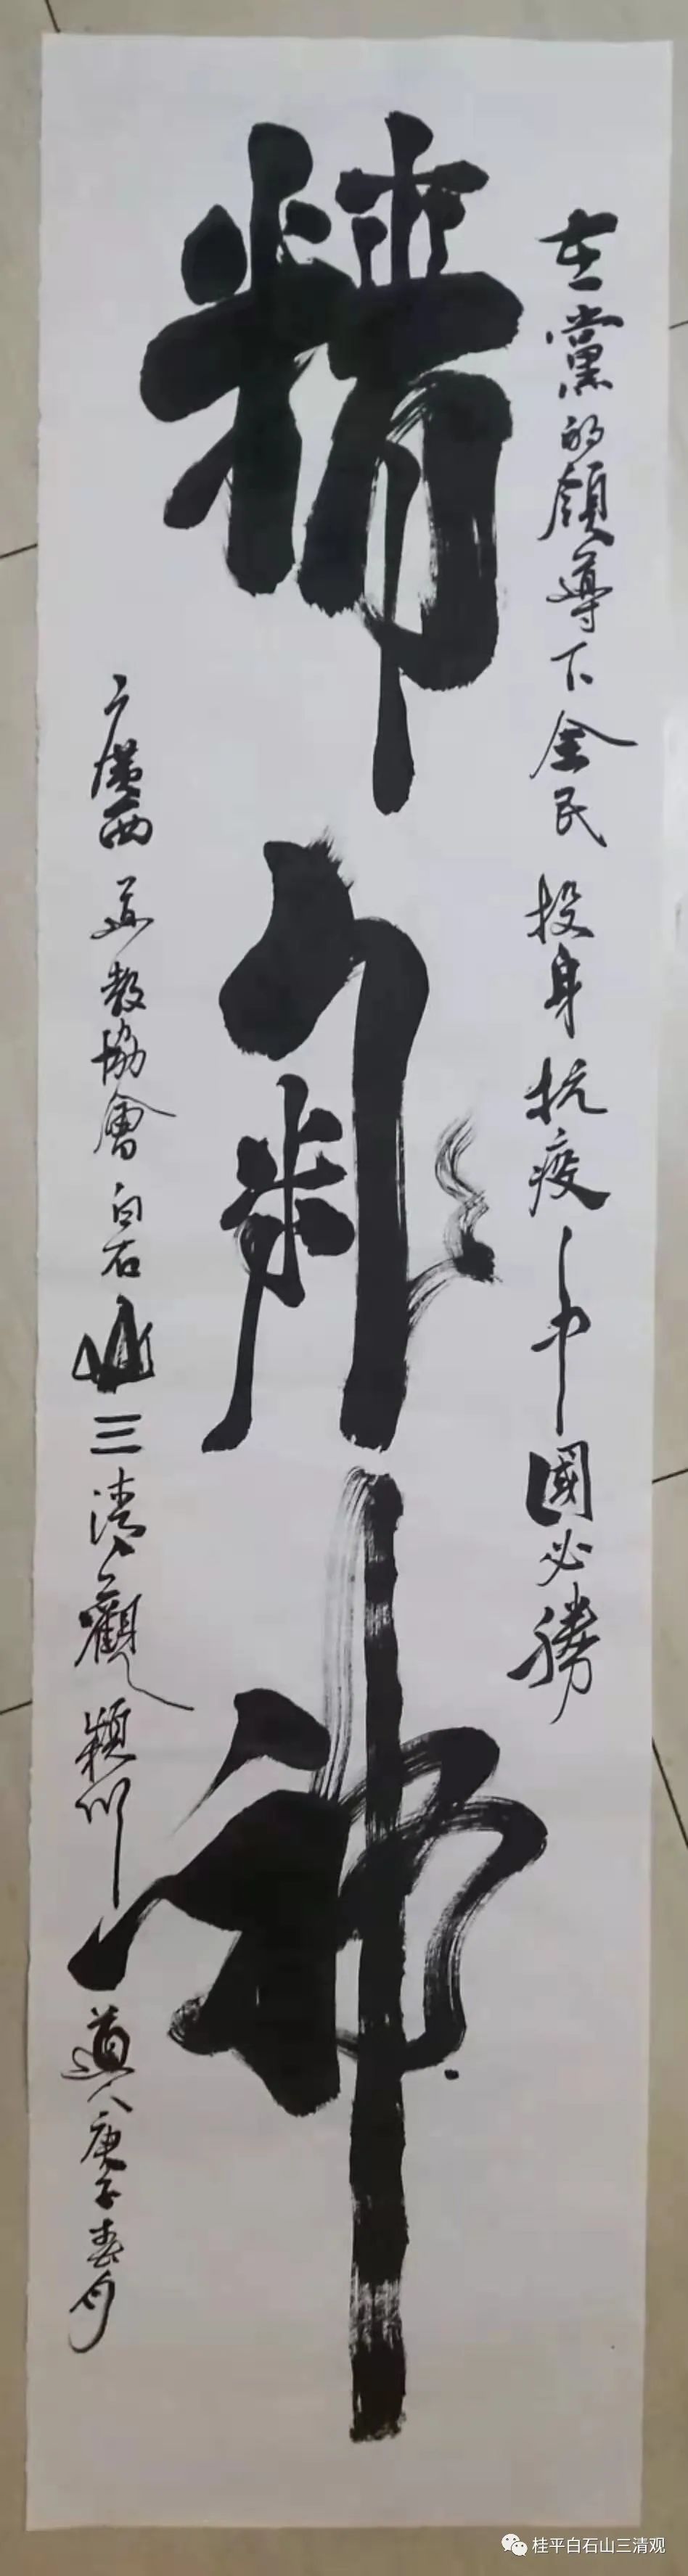 在黨的領導下全民投身抗疫中國必勝
精氣神
廣西道教協會白石山三清觀穎川道人庚子春月
桂平白石山三清观